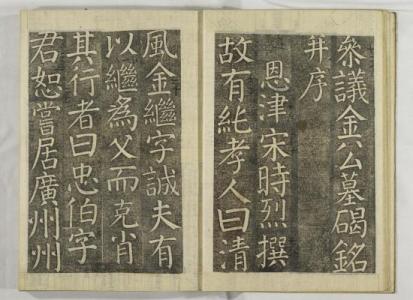 參議金公墓碣銘
并序
恩津宋時烈撰
故有純孝人曰清
風金繼字誠夫有
以繼為父而克肖
其行者曰忠伯字
君恕嘗居廣州州